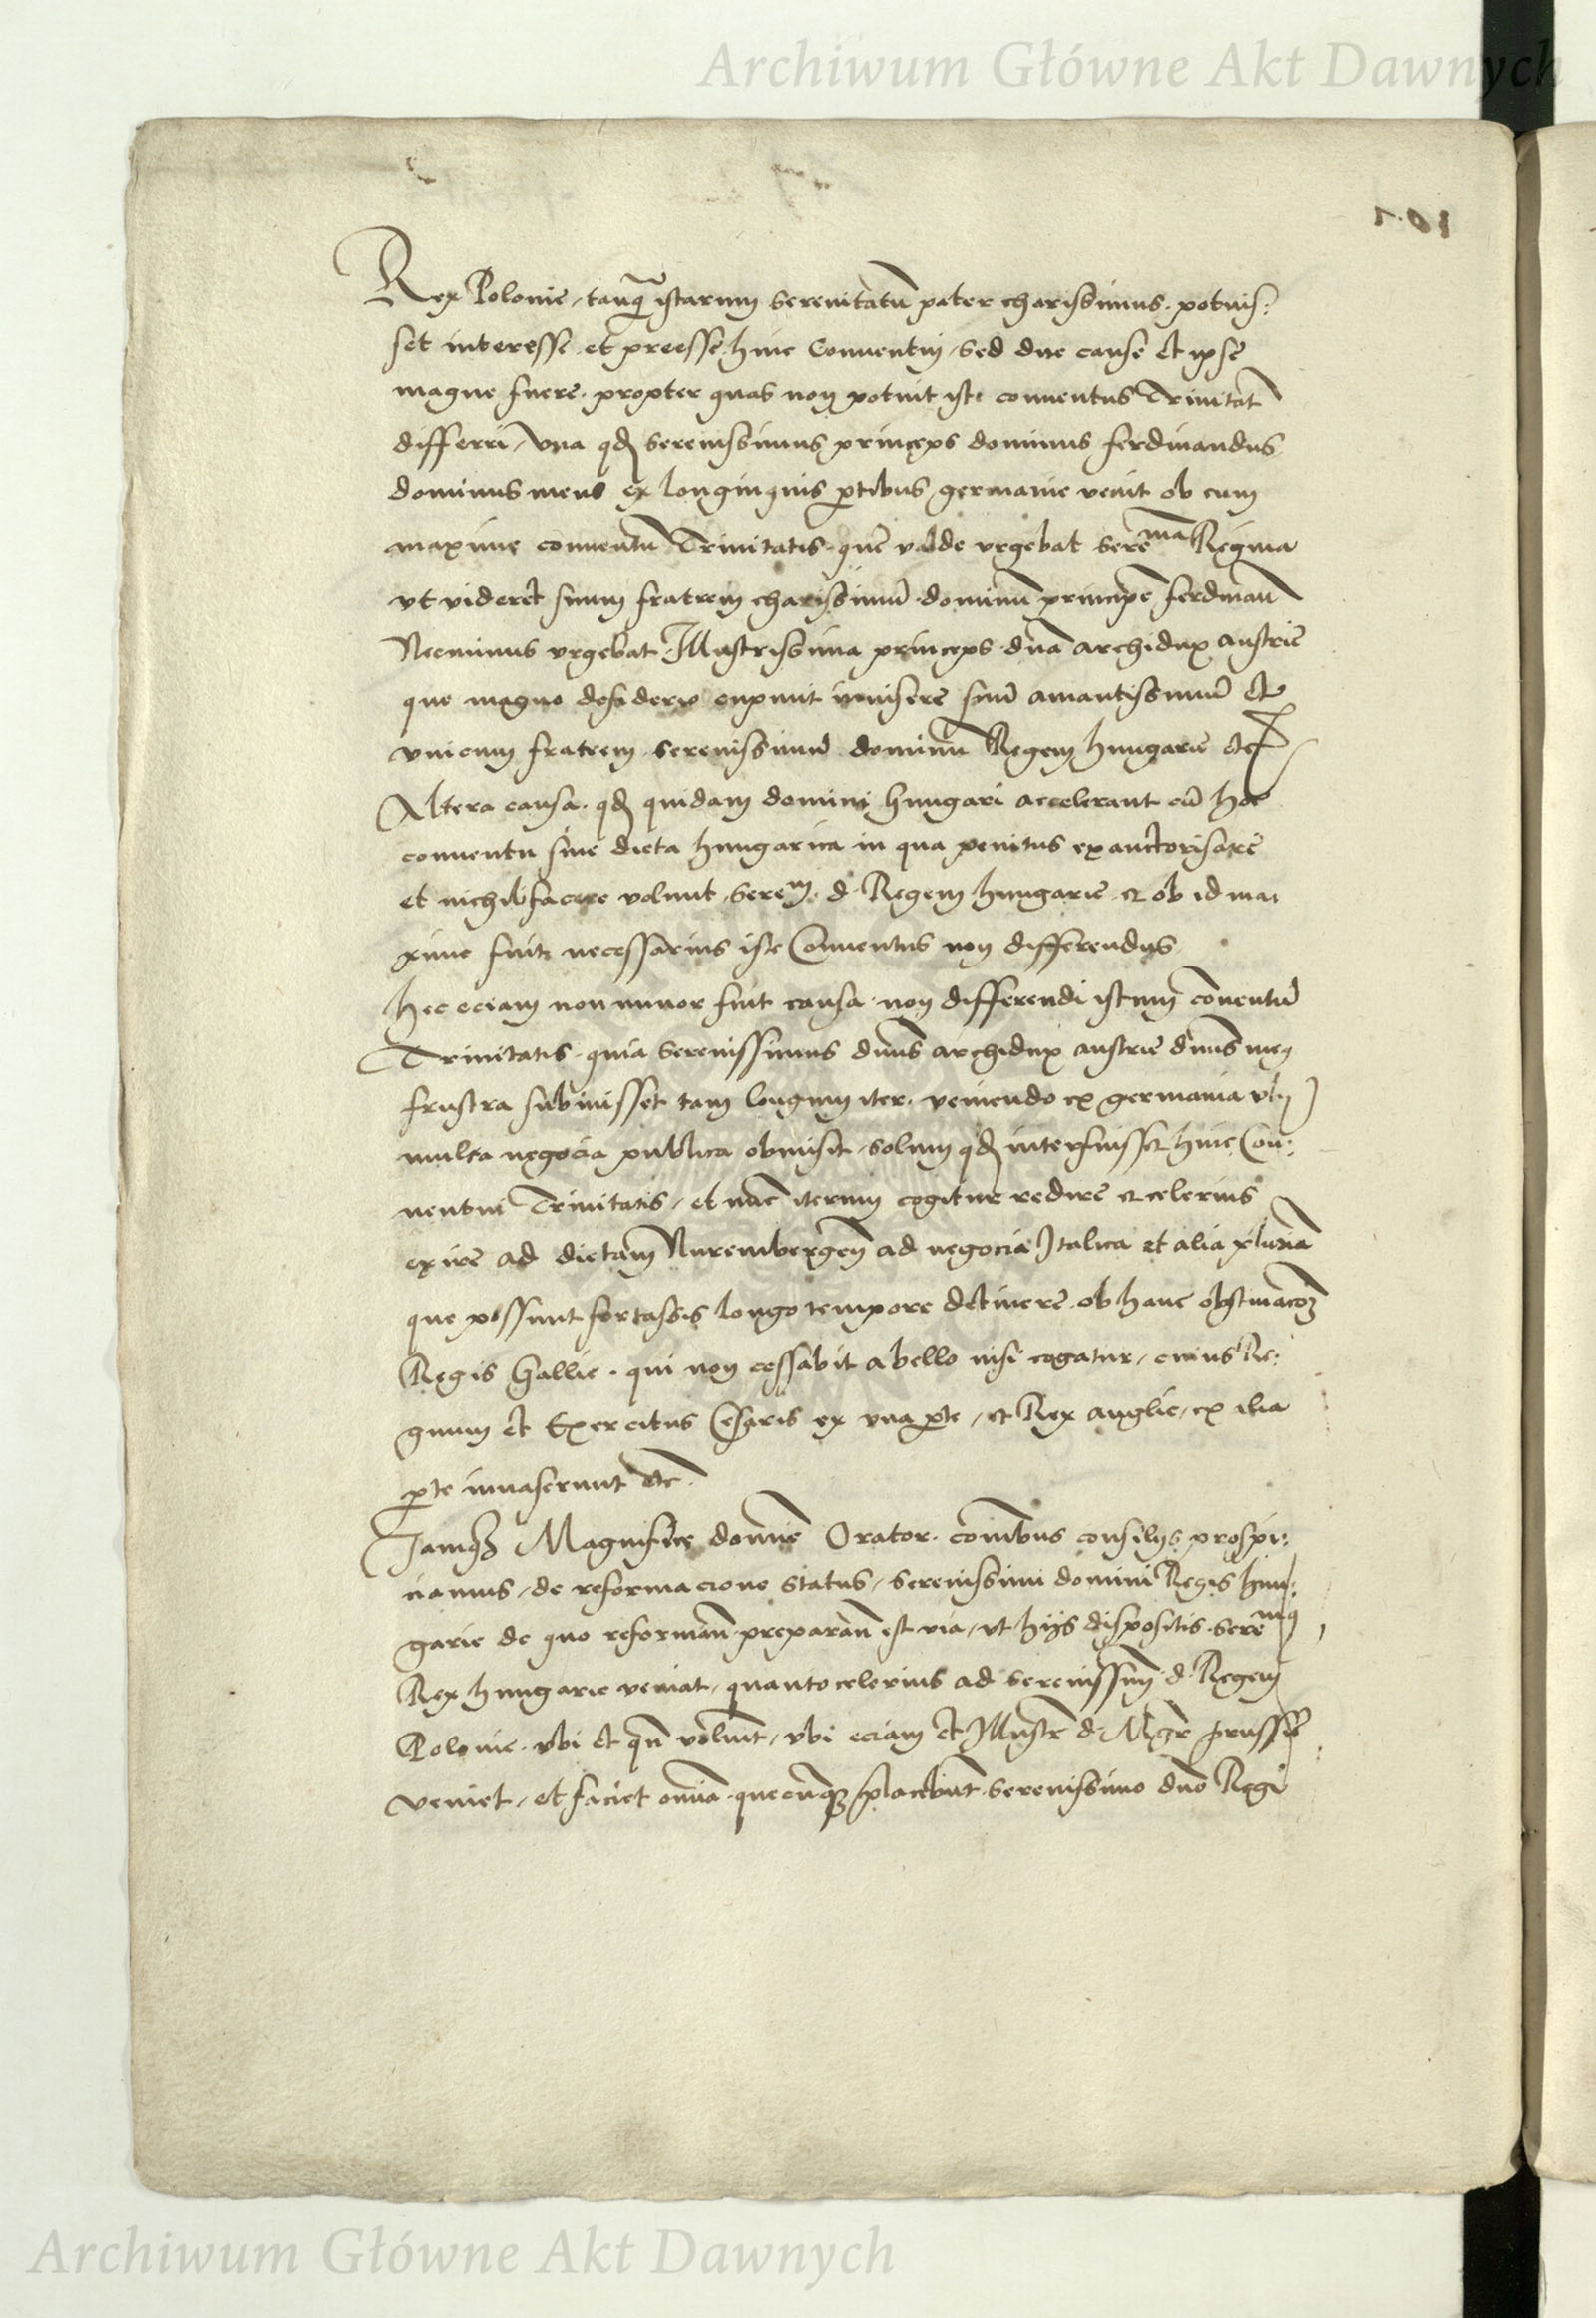 Archiwum Główne Akt Dawnych
Rex Polonie, tanq̃ istarum serenitatũ pater charissimus. potuis:
set interesse et preesse huic Conuentui, sed due cause et ipse
magne fuere. propter quas non potuit iste conuentus Trinitat
differri, vna qd serenissimus princeps dominus ferdinandus
dominus meus ex longinquis ptibus germanie venit ob eum
maxime conuentũ Trinitatis quẽ valde vrgebat serẽma Regina
vt videret suum fratrem charissimũ dominũ principẽ ferdinanũ
Nec minus vrgebat Illustrissima princeps dña archidux austrie
que magno desiderio cupiuit inuisere suũ amantissimũ et
vnicum fratrem serenissimũ dominũ Regem hungarie etc
Altera causa. qd quidam domini hungari accelerant cũ hoc
conuentu siue dieta hungarica in qua penitus exauctorisare
et nichilfacere volunt, serem. d. Regem hungarie et ob id ma
xime fuit necessarius iste Conuentus non differendus
hec eciam non minor fuit causa non differendi istum conentũ
Trinitatis. quia serenissimus dñus archidux austrie dñus meq
frustra subiuisset tam longum iter. veniendo ex germania vbi
multa negocia publica obmisit, solum qd interfuisset huic Con:
uentui Trinitatis, et nũc iterum cogitur redire et celerius
exire ad dietam Nurembergeñ ad negocia Italica et alia plurima
que possunt fortassis longo tempore detinere ob hanc obstinacõꝫ
Regis Gallie. qui non cessabit a bello nisi cogatur, cuius Re:
gnum et Exercitus Cesaris ex vna pte, et Rex anglie, ex alia
pte inuaserunt etc.
Jamqꝫ Magnifice domine Orator. coĩbus consilijs prospi:
ciamus, de reformacione status, serenissimi domini Regis hun:
garie de quo reformañ preparañ est via, vt hijs dispositis serẽmq
Rex hungarie veniat, quanto celerius ad serenissimũ d. Regem
Polonie. vbi et qñ voluit, vbi eciam et Illustr d. Mgr prussie
veniet, et faciet omĩa quecunqꝫ placebunt serenissimo dño Regi
Archiwum Główne Akt Dawnych